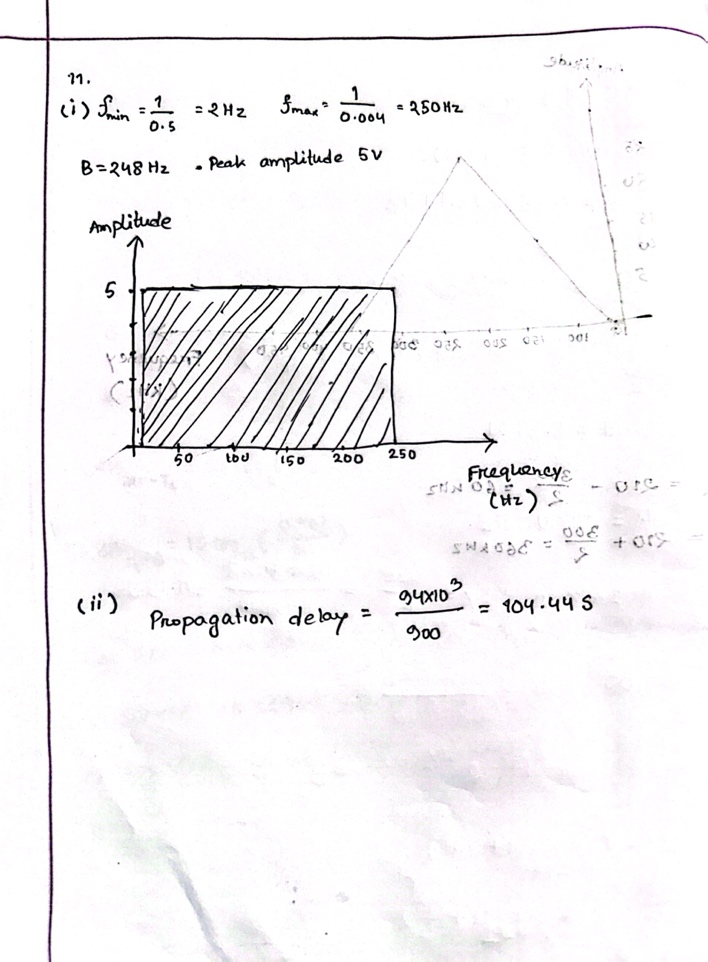 11.
(i) fmin = 1/0.5 = 2Hz fmax = 1/0.004 = 250Hz
B=248 Hz . Peak amplitude 5V
Amplitude
5
50 100 150 200 250
Frequency
(Hz)
(ii) Propagation delay = 94x10³/900 = 104.44 S